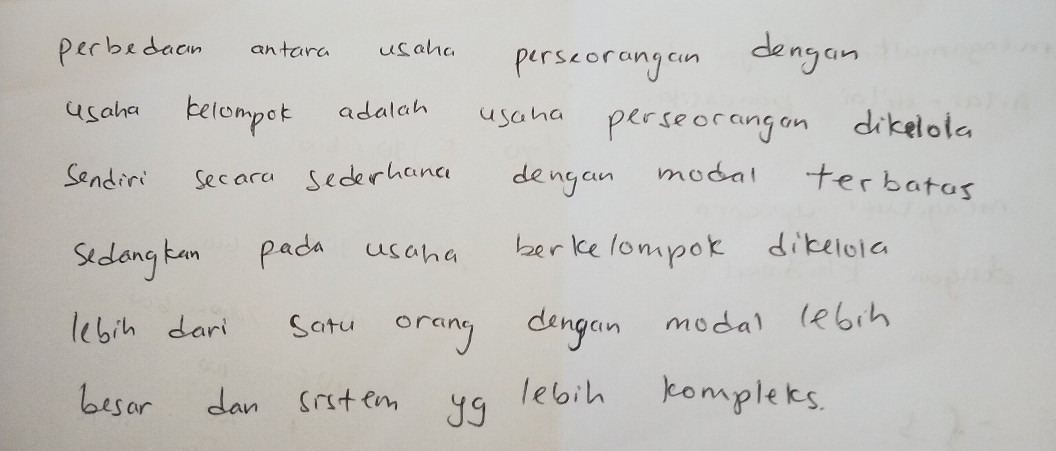 perbedaan antara usaha perseorangan dengan
usaha kelompok adalah usaha perseorangan dikelola
Sendiri secara sederhana dengan modal terbatas
sedangkan pada usaha berkelompok dikelola
lebih dari satu orang dengan modal lebih
besar dan sistem yg lebih kompleks.